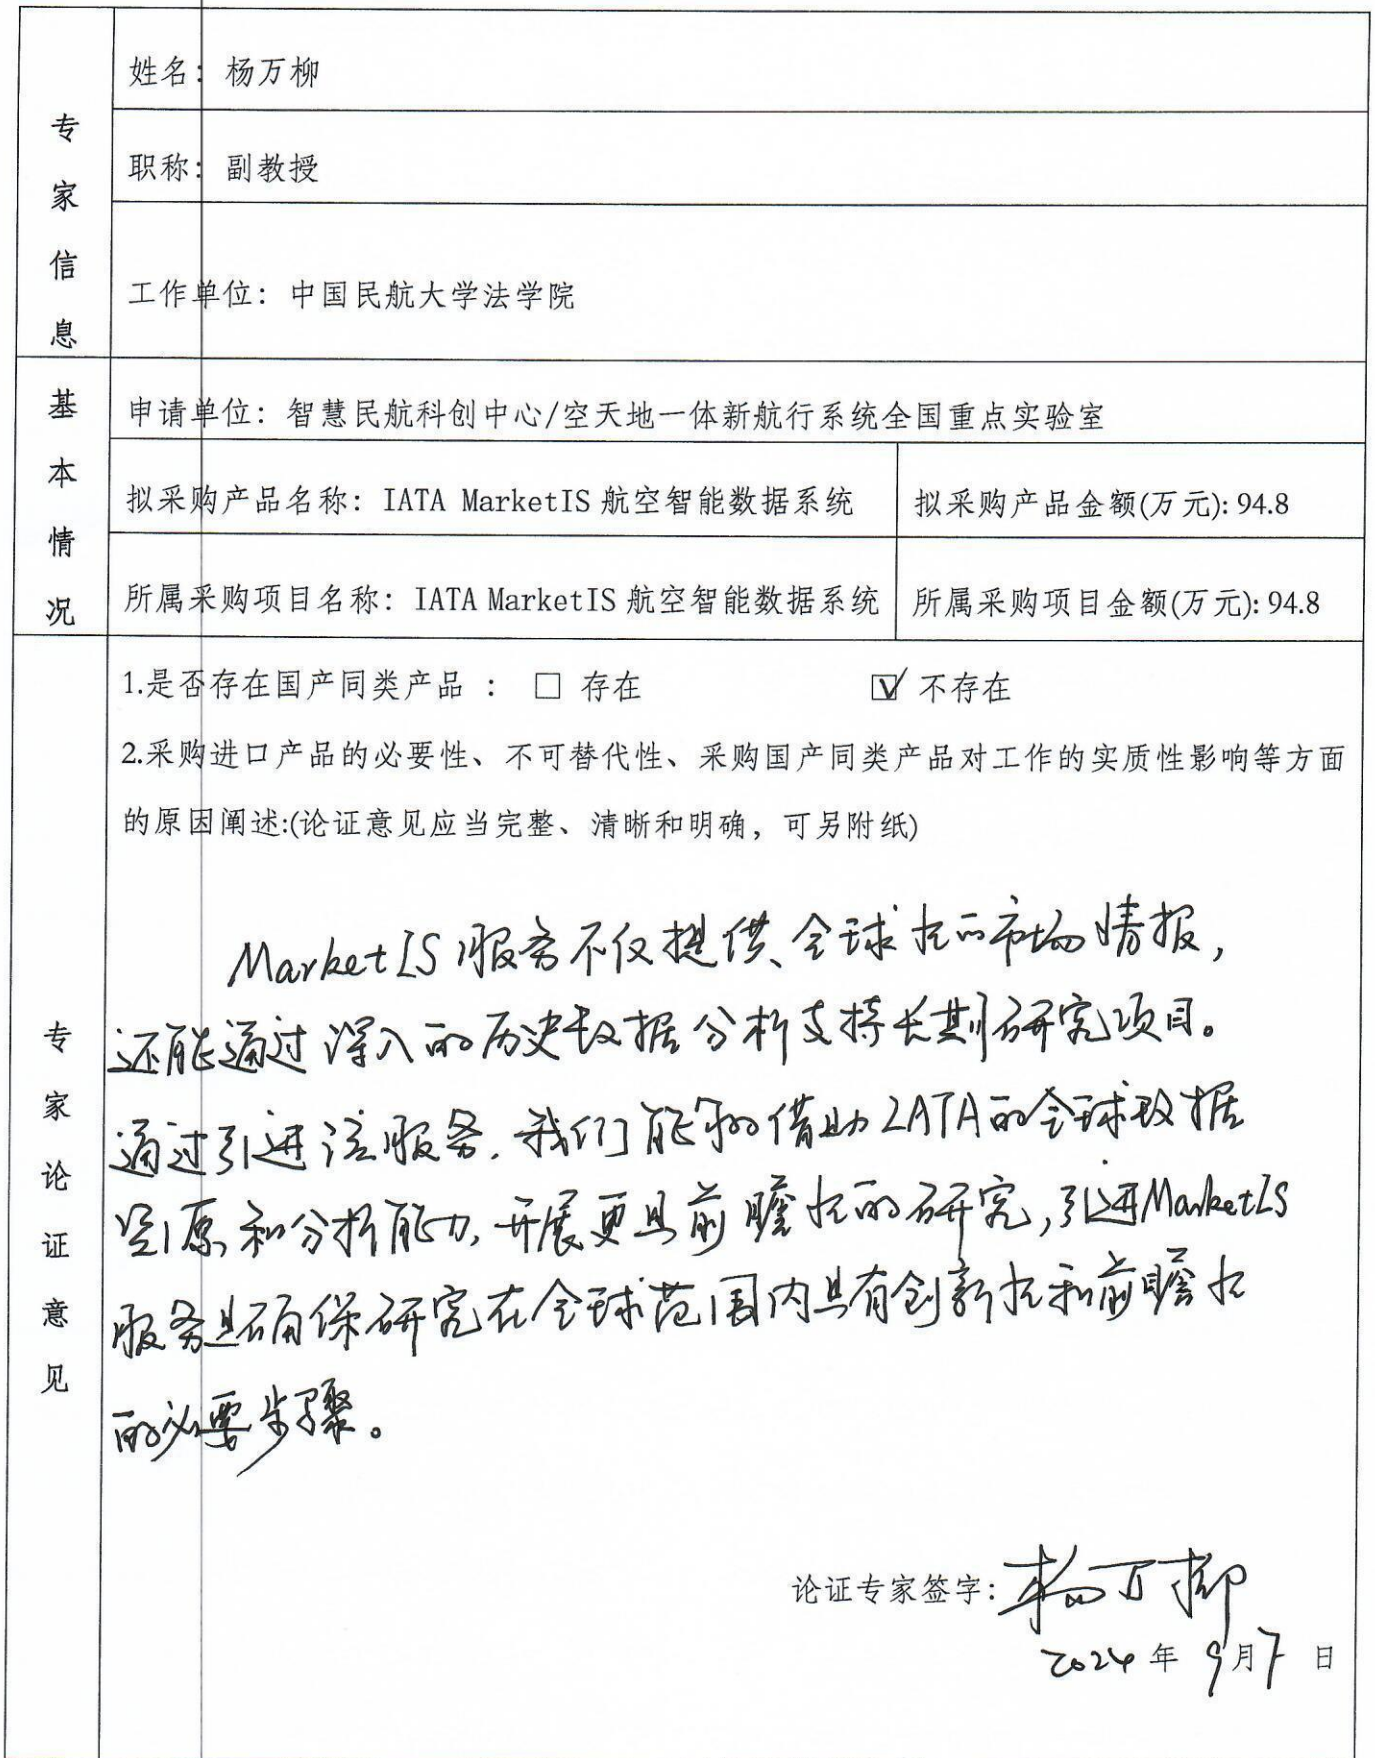 专家信息
姓名：杨万柳
职称：副教授
工作单位：中国民航大学法学院
基本情况
申请单位：智慧民航科创中心/空天地一体新航行系统全国重点实验室
拟采购产品名称：IATA MarketIS 航空智能数据系统
拟采购产品金额(万元): 94.8
所属采购项目名称：IATA MarketIS 航空智能数据系统
所属采购项目金额(万元): 94.8
专家论证意见
1.是否存在国产同类产品 ： □ 存在 ☑ 不存在
2.采购进口产品的必要性、不可替代性、采购国产同类产品对工作的实质性影响等方面
的原因阐述:(论证意见应当完整、清晰和明确，可另附纸)
MarketIS服务不仅提供全球性的市场情报，
还能通过深入的历史数据分析支持长期研究项目。
通过引进该服务，我们能够借助IATA的全球数据
资源和分析能力，开展更具前瞻性的研究，引进MarketIS
服务是确保研究在全球范围内具有创新性和前瞻性
的必要步骤。
论证专家签字：杨万柳
2024年9月7日